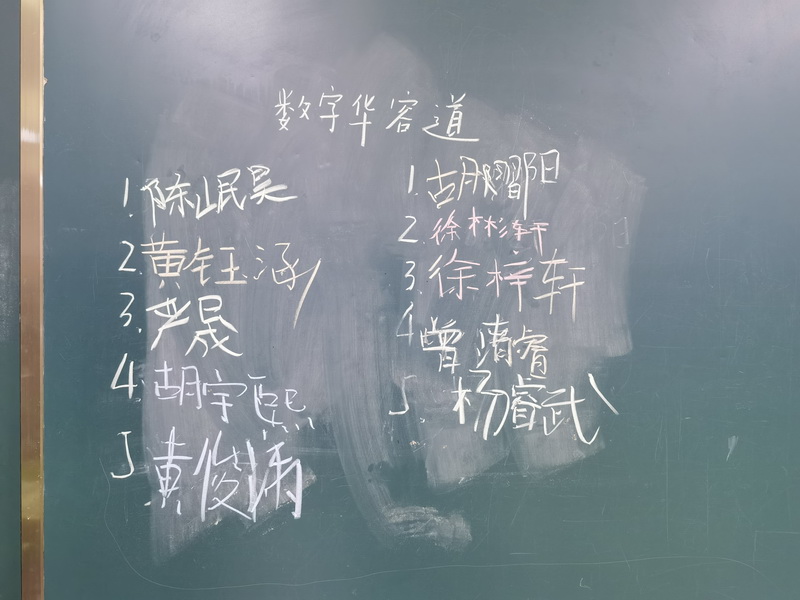 数字华容道
1.陈岷昊
2.黄钰涵
3.严晟
4.胡宇熙
5.黄俊涛
1.胡
2.徐彬轩
3.徐梓轩
4.曾清睿
5.杨睿武